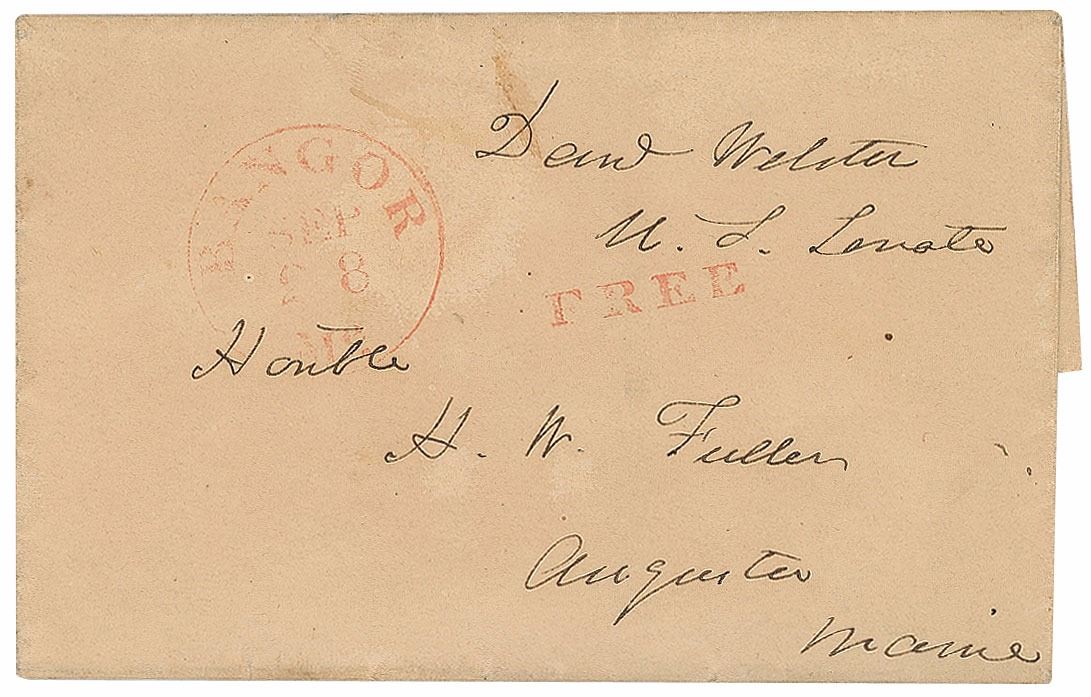 Danl Webster
U. S. Senate
BANGOR
SEP
28
ME.
FREE
Honble
H. W. Fuller
Augusta
Maine